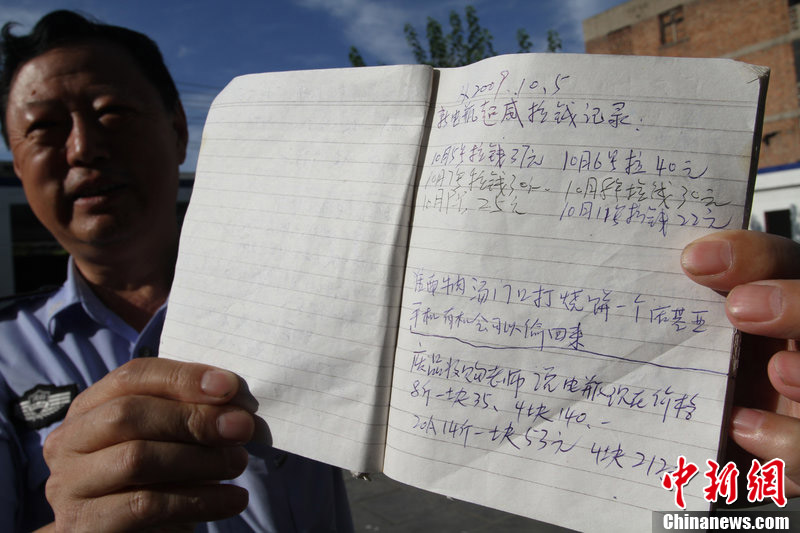 2009.10.5
新电瓶超威拉钱记录:
10月5号拉钱37元 10月6号拉40元
10月7号拉钱30 10月8号拉钱30元
10月 25元 10月11号拉钱22元
淮南牛肉汤门口打烧饼一个诺基亚
手机有机会可以偷回来
废品收购老师说电瓶现在价格
8斤一块35、4块140.-
20A14斤一块53元 4块212
中新网
Chinanews.com